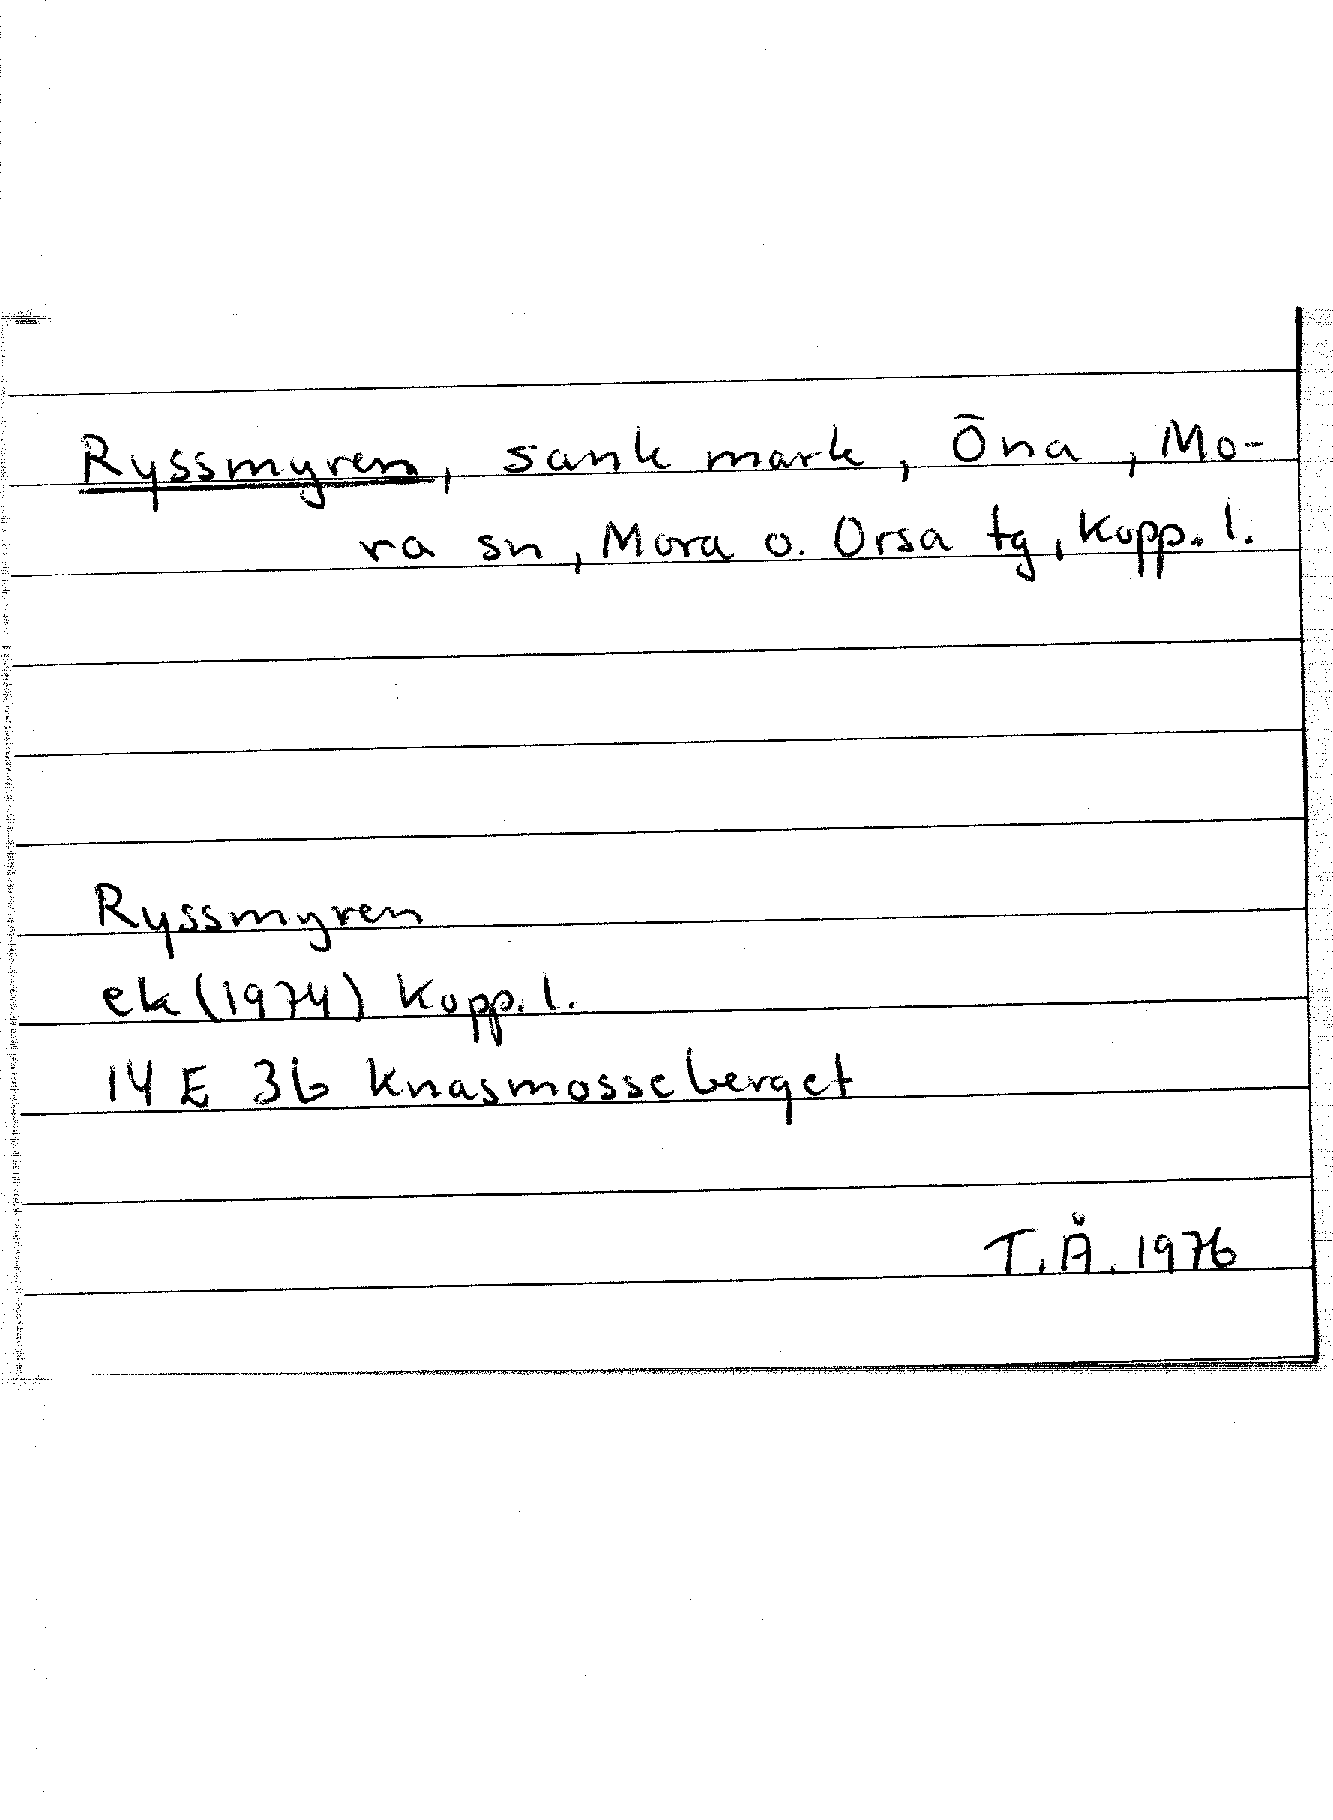 Ryssmyren, sank mark, Öna, Mo-
ra sn, Mora o. Orsa tg, Kopp. l.
Ryssmyren
ek (1974) Kopp. l.
14 E 3b Knasmosseberget
T. Å. 1976